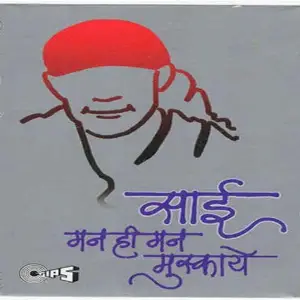 साई
मन ही मन
मुस्काये
TIPS